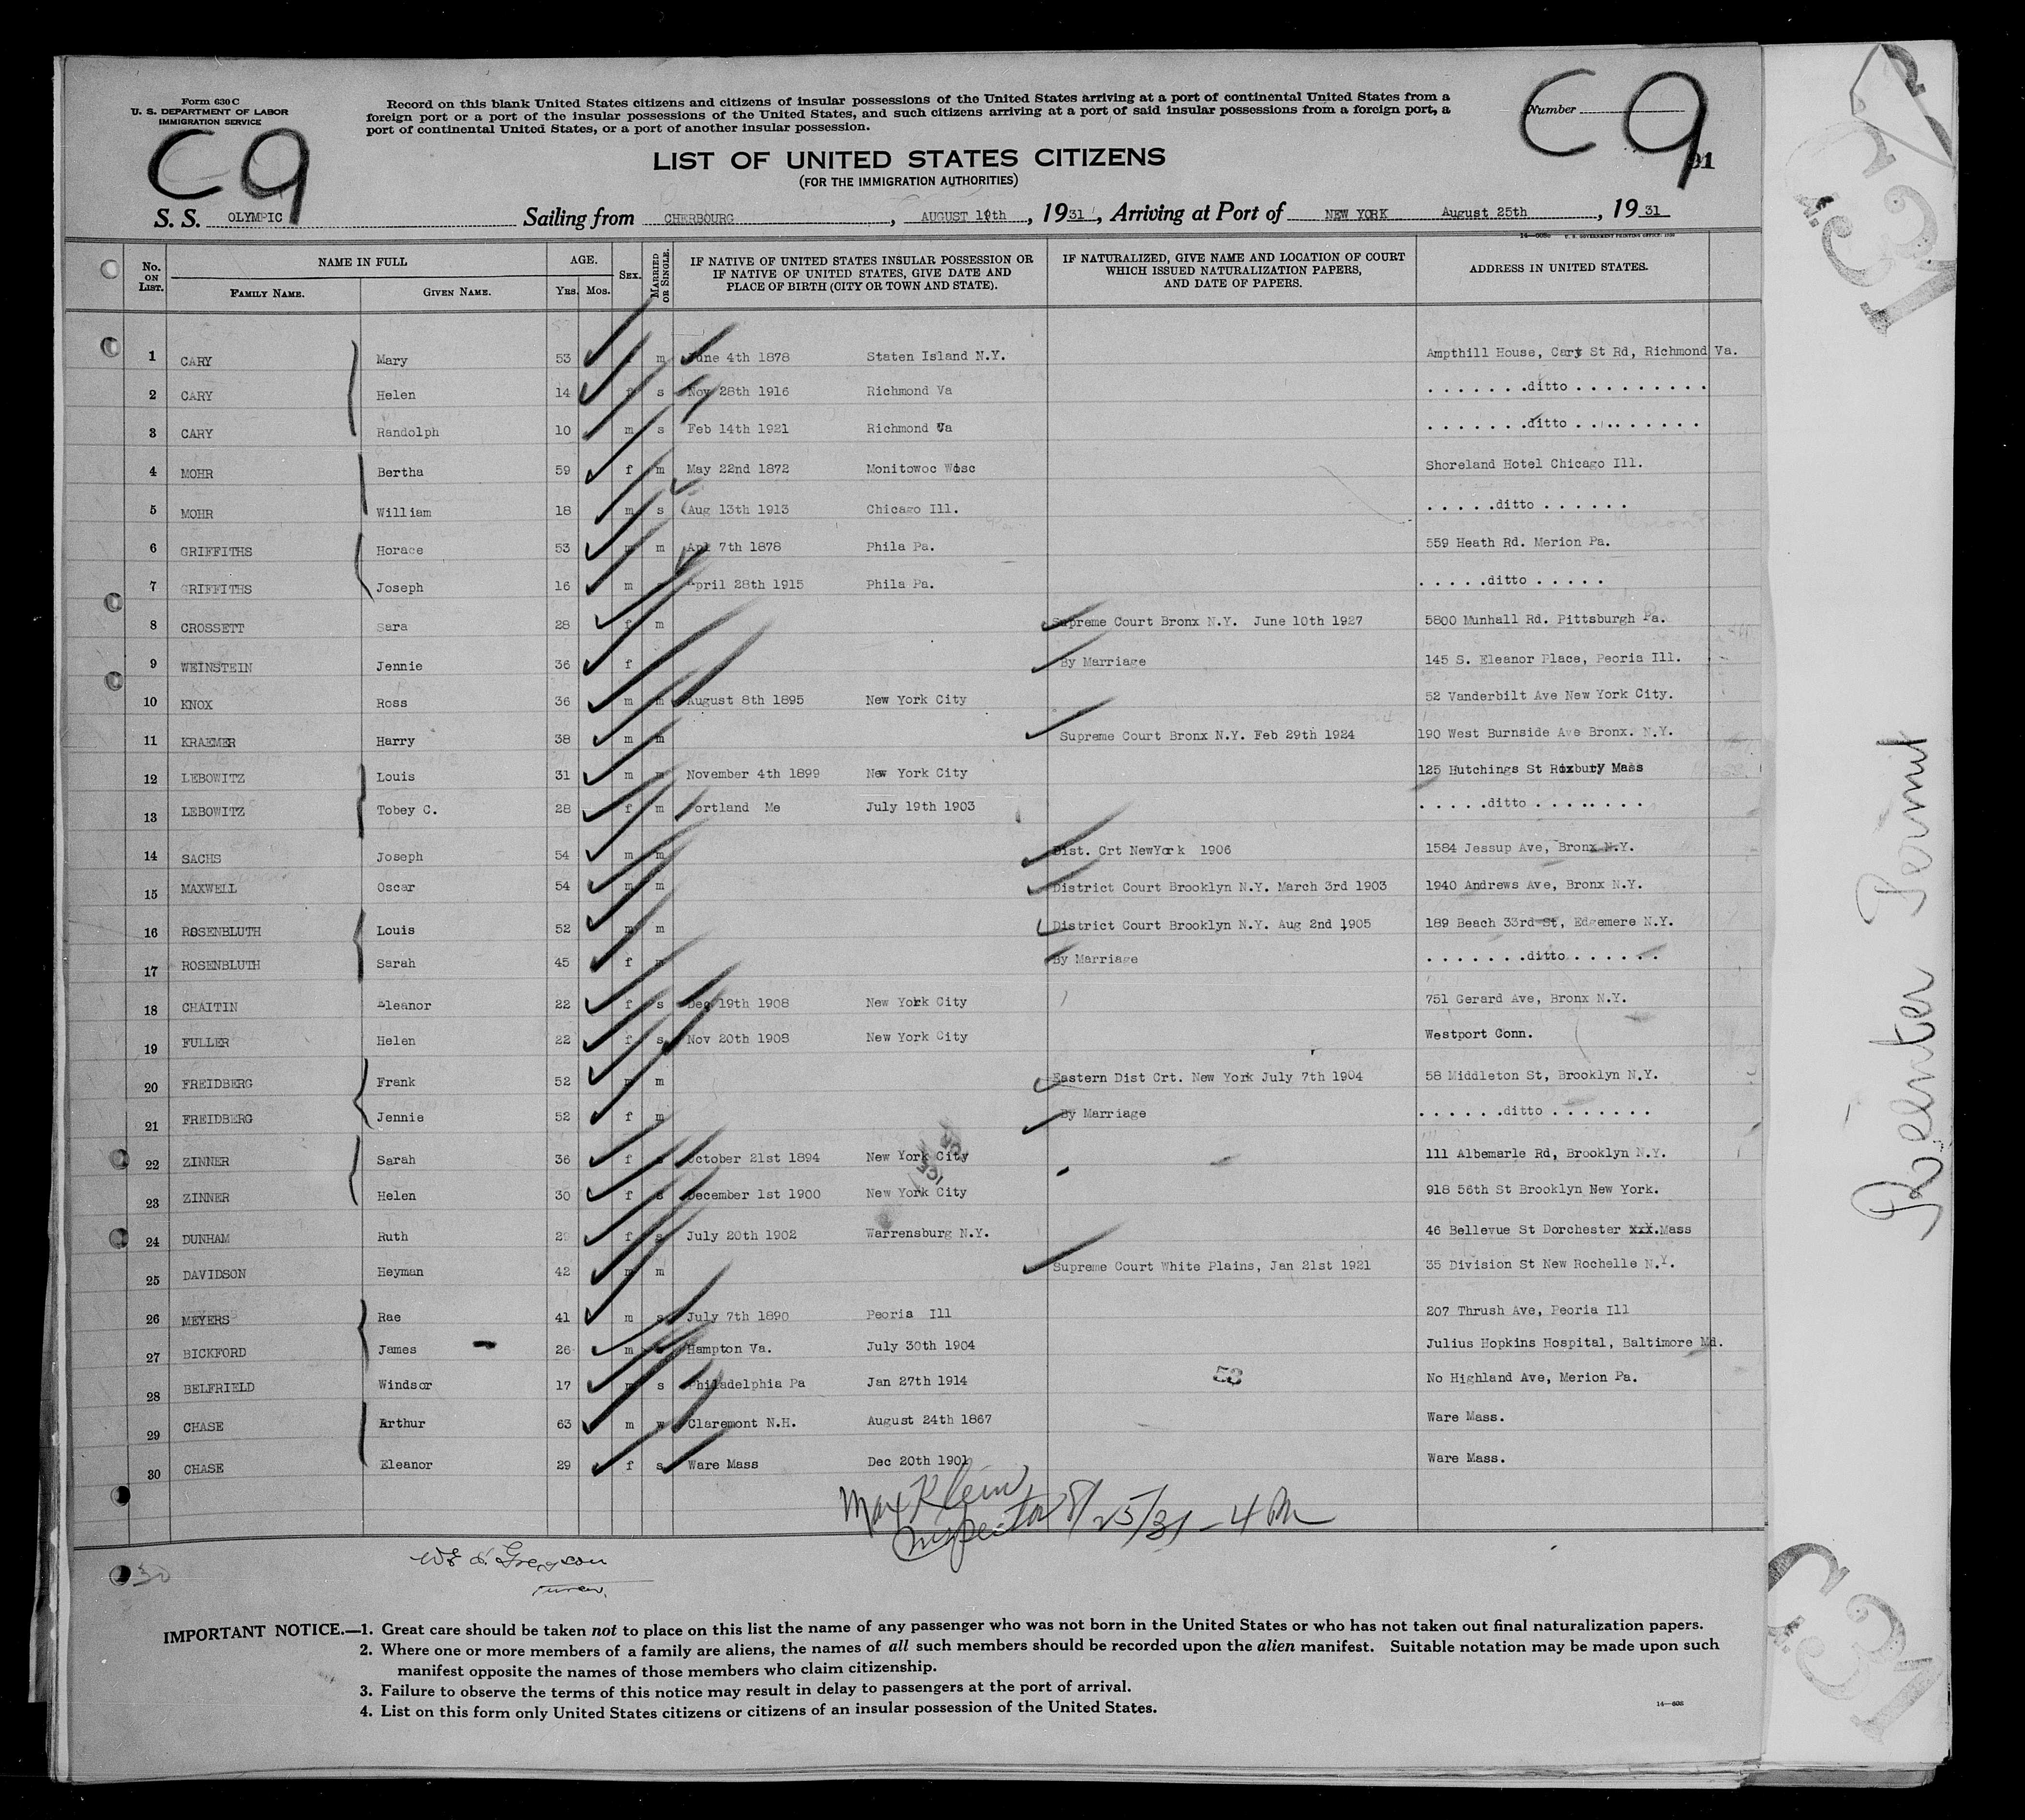 Form 630 C
U. S. DEPARTMENT OF LABOR
IMMIGRATION SERVICE
Record on this blank United States citizens and citizens of insular possessions of the United States arriving at a port of continental United States from a
foreign port or a port of the insular possessions of the United States, and such citizens arriving at a port of said insular possessions from a foreign port, a
port of continental United States, or a port of another insular possession.
Number
C9
C9
LIST OF UNITED STATES CITIZENS
(FOR THE IMMIGRATION AUTHORITIES)
S. S. OLYMPIC Sailing from CHERBOURG, AUGUST 19th, 1931, Arriving at Port of NEW YORK August 25th, 1931
No. ON LIST. NAME IN FULL AGE. SEX. MARRIED OR SINGLE. IF NATIVE OF UNITED STATES INSULAR POSSESSION OR IF NATIVE OF UNITED STATES, GIVE DATE AND PLACE OF BIRTH (CITY OR TOWN AND STATE). IF NATURALIZED, GIVE NAME AND LOCATION OF COURT WHICH ISSUED NATURALIZATION PAPERS, AND DATE OF PAPERS. ADDRESS IN UNITED STATES.
FAMILY NAME. GIVEN NAME. Yrs. Mos.
1 CARY Mary 53 f m June 4th 1878 Staten Island N.Y. Ampthill House, Cary St Rd, Richmond Va.
2 CARY Helen 14 f s Nov 28th 1916 Richmond Va .......ditto.........
3 CARY Randolph 10 m s Feb 14th 1921 Richmond Va .......ditto.........
4 MOHR Bertha 59 f m May 22nd 1872 Monitowoc Wisc Shoreland Hotel Chicago Ill.
5 MOHR William 18 m s Aug 13th 1913 Chicago Ill. .....ditto......
6 GRIFFITHS Horace 53 m m Apl 7th 1878 Phila Pa. 559 Heath Rd. Merion Pa.
7 GRIFFITHS Joseph 16 m April 28th 1915 Phila Pa. .....ditto.....
8 CROSSETT Sara 28 f m Supreme Court Bronx N.Y. June 10th 1927 5800 Munhall Rd. Pittsburgh Pa.
9 WEINSTEIN Jennie 36 f By Marriage 145 S. Eleanor Place, Peoria Ill.
10 KNOX Ross 36 m m August 8th 1895 New York City 52 Vanderbilt Ave New York City.
11 KRAEMER Harry 38 m m Supreme Court Bronx N.Y. Feb 29th 1924 190 West Burnside Ave Bronx. N.Y.
12 LEBOWITZ Louis 31 m m November 4th 1899 New York City 125 Hutchings St Roxbury Mass
13 LEBOWITZ Tobey C. 28 f m Portland Me July 19th 1903 .....ditto........
14 SACHS Joseph 54 m m Dist. Crt NewYork 1906 1584 Jessup Ave, Bronx N.Y.
15 MAXWELL Oscar 54 m m District Court Brooklyn N.Y. March 3rd 1903 1940 Andrews Ave, Bronx N.Y.
16 ROSENBLUTH Louis 52 m m District Court Brooklyn N.Y. Aug 2nd 1905 189 Beach 33rd St, Edgemere N.Y.
17 ROSENBLUTH Sarah 45 f m By Marriage .......ditto......
18 CHAITIN Eleanor 22 f s Dec 19th 1908 New York City 751 Gerard Ave, Bronx N.Y.
19 FULLER Helen 22 f s Nov 20th 1908 New York City Westport Conn.
20 FREIDBERG Frank 52 m m Eastern Dist Crt. New York July 7th 1904 58 Middleton St, Brooklyn N.Y.
21 FREIDBERG Jennie 52 f m By Marriage ......ditto.......
22 ZINNER Sarah 36 f s October 21st 1894 New York City 111 Albemarle Rd, Brooklyn N.Y.
23 ZINNER Helen 30 f s December 1st 1900 New York City 918 56th St Brooklyn New York.
24 DUNHAM Ruth 29 f s July 20th 1902 Warrensburg N.Y. 46 Bellevue St Dorchester XXX.Mass
25 DAVIDSON Heyman 42 m m Supreme Court White Plains, Jan 21st 1921 35 Division St New Rochelle N.Y.
26 MEYERS Rae 41 m s July 7th 1890 Peoria Ill 207 Thrush Ave, Peoria Ill
27 BICKFORD James 26 m Hampton Va. July 30th 1904 Julius Hopkins Hospital, Baltimore Md.
28 BELFRIELD Windsor 17 m s Philadelphia Pa Jan 27th 1914 No Highland Ave, Merion Pa.
29 CHASE Arthur 63 m w Claremont N.H. August 24th 1867 Ware Mass.
30 CHASE Eleanor 29 f s Ware Mass Dec 20th 1901 Ware Mass.
Max Klein
Inspector 8/25/31 - 4 PM
IMPORTANT NOTICE.—1. Great care should be taken not to place on this list the name of any passenger who was not born in the United States or who has not taken out final naturalization papers.
2. Where one or more members of a family are aliens, the names of all such members should be recorded upon the alien manifest. Suitable notation may be made upon such
manifest opposite the names of those members who claim citizenship.
3. Failure to observe the terms of this notice may result in delay to passengers at the port of arrival.
4. List on this form only United States citizens or citizens of an insular possession of the United States.
Reënter Permit